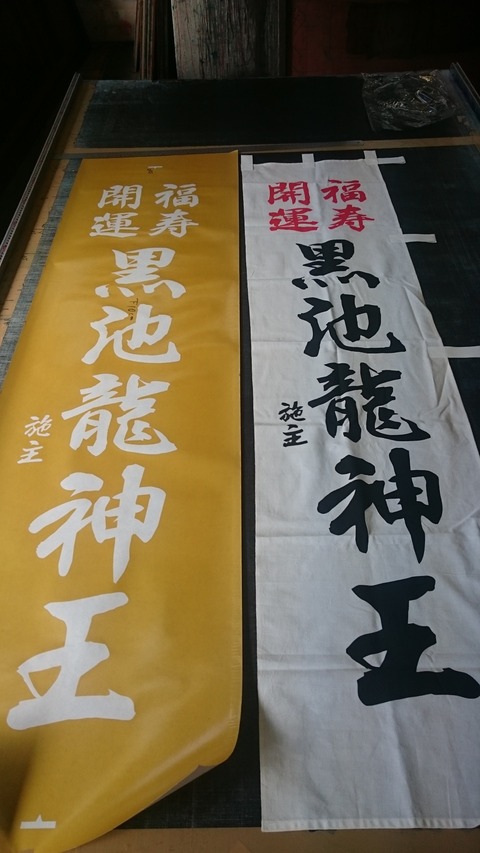 福寿
開運
黒池龍神王
施主
福寿
開運
黒池龍神王
施主